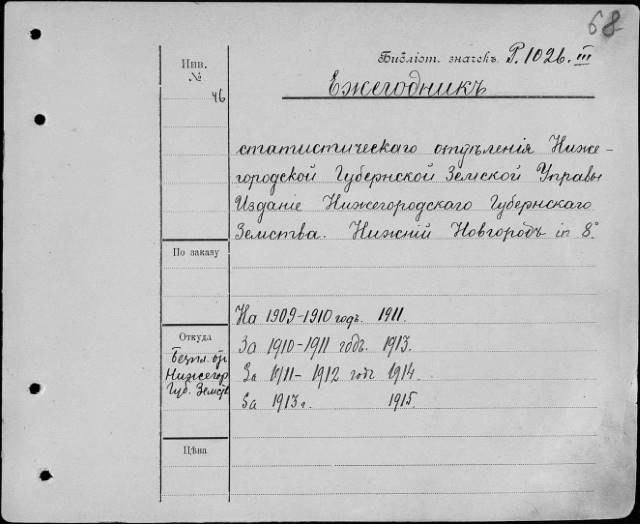 68
Библіот. значекъ P. 1026. III
Инв. №
46
Ежегодникъ
статистическаго отдѣленія Ниже-
городской Губернской Земской Управы
Изданіе Нижегородскаго Губернскаго
Земства. Нижній Новгородъ in 8°
По заказу
На 1909-1910 годъ. 1911.
Откуда
За 1910-1911 годъ. 1913.
Безпл. от
Нижегор
За 1911-1912 годъ 1914.
Губ. Земств
За 1913 г. 1915.
Цѣна